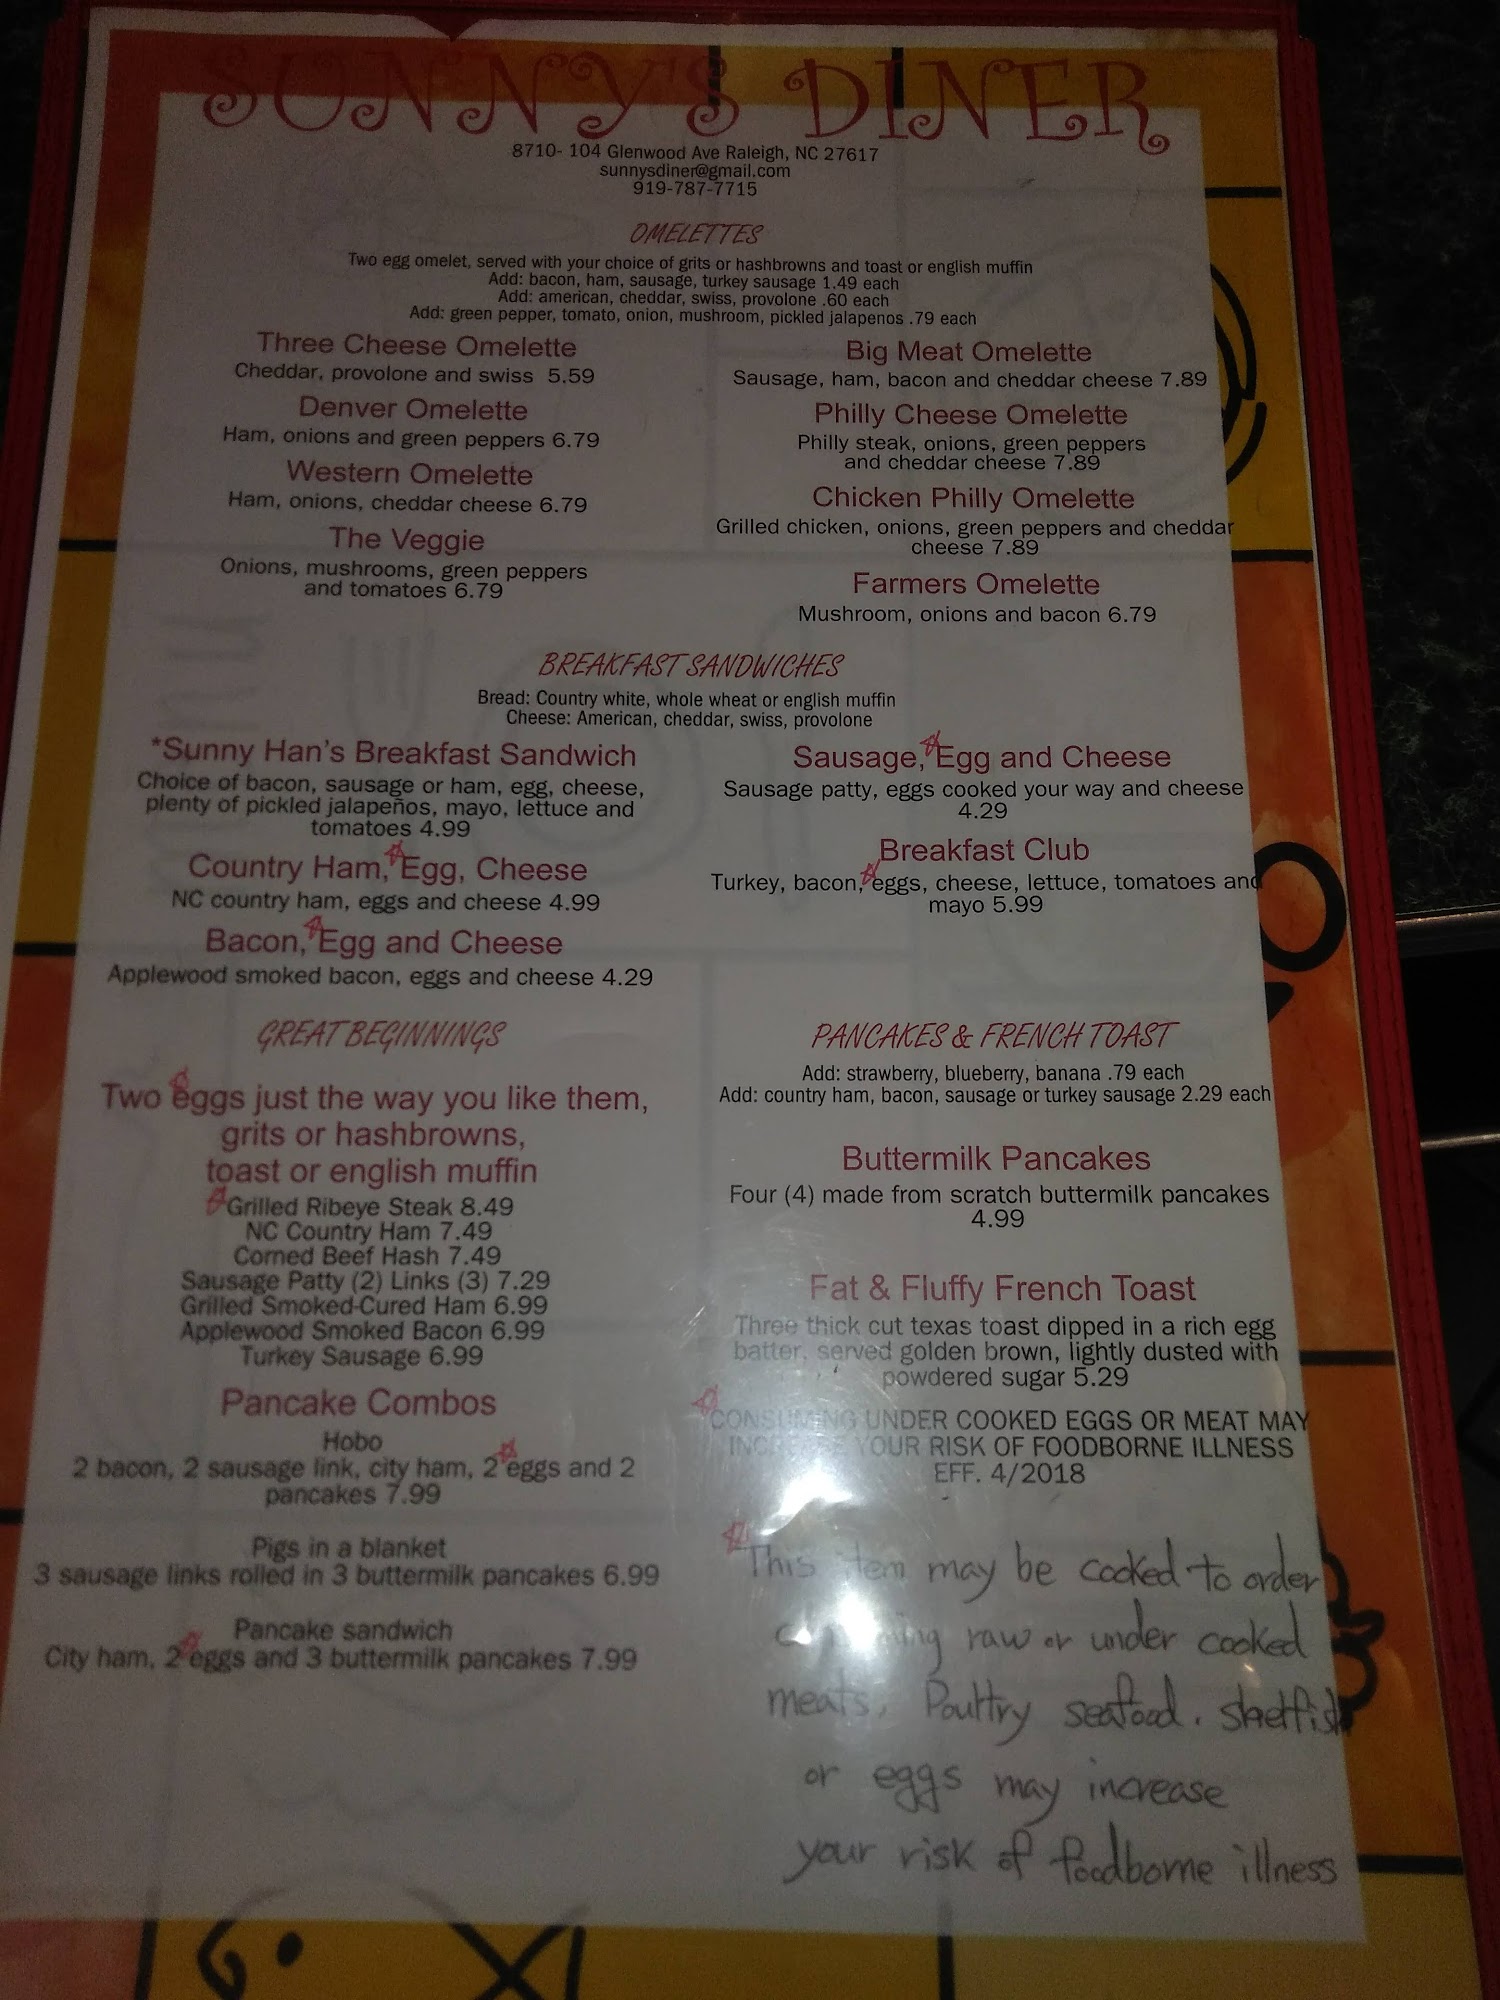 SUNNY'S DINER
8710- 104 Glenwood Ave Raleigh, NC 27617
sunnysdiner@gmail.com
919-787-7715
OMELETTES
Two egg omelet, served with your choice of grits or hashbrowns and toast or english muffin
Add: bacon, ham, sausage, turkey sausage 1.49 each
Add: american, cheddar, swiss, provolone .60 each
Add: green pepper, tomato, onion, mushroom, pickled jalapenos .79 each
Three Cheese Omelette
Cheddar, provolone and swiss 5.59
Denver Omelette
Ham, onions and green peppers 6.79
Western Omelette
Ham, onions, cheddar cheese 6.79
The Veggie
Onions, mushrooms, green peppers
and tomatoes 6.79
Big Meat Omelette
Sausage, ham, bacon and cheddar cheese 7.89
Philly Cheese Omelette
Philly steak, onions, green peppers
and cheddar cheese 7.89
Chicken Philly Omelette
Grilled chicken, onions, green peppers and cheddar
cheese 7.89
Farmers Omelette
Mushroom, onions and bacon 6.79
BREAKFAST SANDWICHES
Bread: Country white, whole wheat or english muffin
Cheese: American, cheddar, swiss, provolone
*Sunny Han's Breakfast Sandwich
Choice of bacon, sausage or ham, egg, cheese,
plenty of pickled jalapeños, mayo, lettuce and
tomatoes 4.99
Country Ham, Egg, Cheese
NC country ham, eggs and cheese 4.99
Bacon, Egg and Cheese
Applewood smoked bacon, eggs and cheese 4.29
Sausage, Egg and Cheese
Sausage patty, eggs cooked your way and cheese
4.29
Breakfast Club
Turkey, bacon, eggs, cheese, lettuce, tomatoes and
mayo 5.99
GREAT BEGINNINGS
Two eggs just the way you like them,
grits or hashbrowns,
toast or english muffin
Grilled Ribeye Steak 8.49
NC Country Ham 7.49
Corned Beef Hash 7.49
Sausage Patty (2) Links (3) 7.29
Grilled Smoked-Cured Ham 6.99
Applewood Smoked Bacon 6.99
Turkey Sausage 6.99
Pancake Combos
Hobo
2 bacon, 2 sausage link, city ham, 2 eggs and 2
pancakes 7.99
Pigs in a blanket
3 sausage links rolled in 3 buttermilk pancakes 6.99
Pancake sandwich
City ham, 2 eggs and 3 buttermilk pancakes 7.99
PANCAKES & FRENCH TOAST
Add: strawberry, blueberry, banana .79 each
Add: country ham, bacon, sausage or turkey sausage 2.29 each
Buttermilk Pancakes
Four (4) made from scratch buttermilk pancakes
4.99
Fat & Fluffy French Toast
Three thick cut texas toast dipped in a rich egg
batter, served golden brown, lightly dusted with
powdered sugar 5.29
CONSUMING UNDER COOKED EGGS OR MEAT MAY
INCREASE YOUR RISK OF FOODBORNE ILLNESS
EFF. 4/2018
This item may be cooked to order
consuming raw or under cooked
meats, Poultry seafood, shellfish
or eggs may increase
your risk of foodborne illness